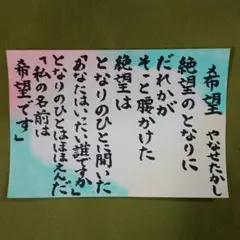 希望　やなせたかし
絶望のとなりに
だれかが
そっと腰かけた
絶望は
となりのひとに聞いた
「あなたはいったい誰ですか」
となりのひとはほほえんだ
「私の名前は
希望です」